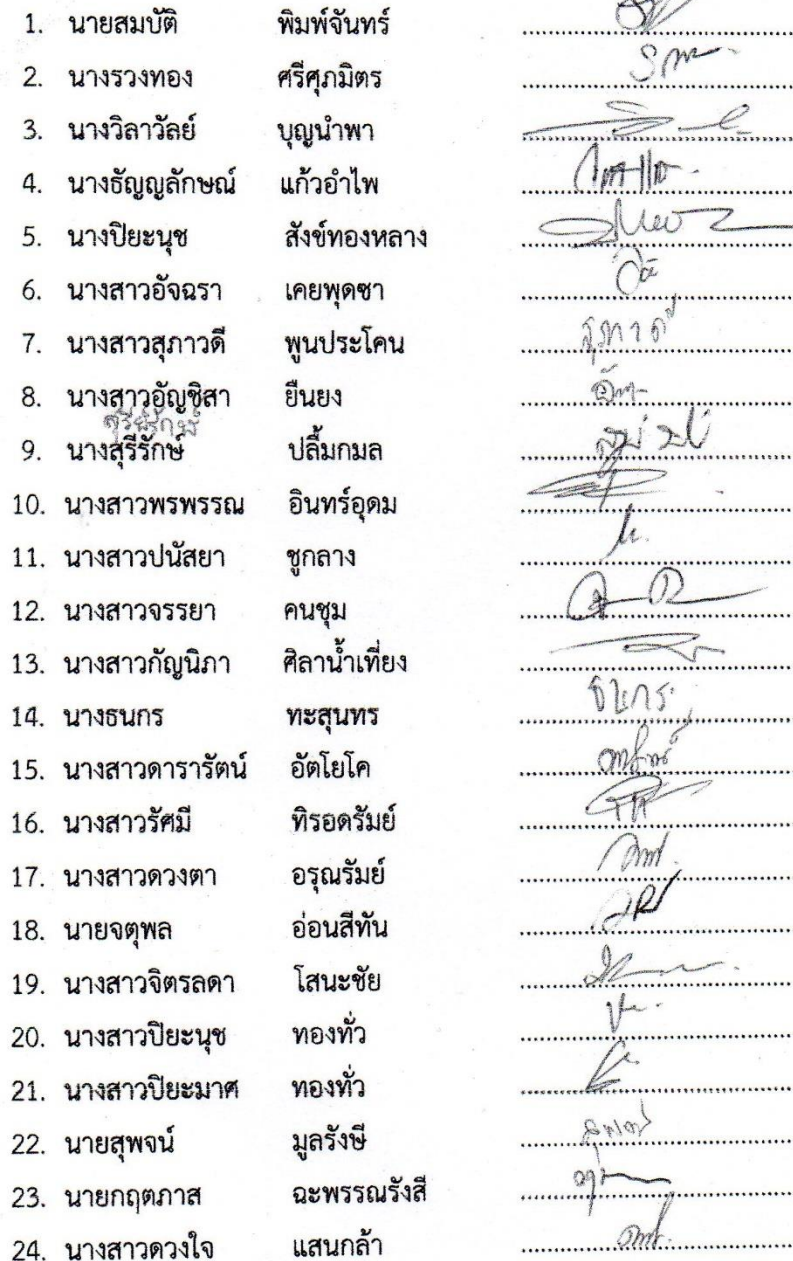 1. นายสมบัติ พิมพ์จันทร์
2. นางรวงทอง ศรีศุภมิตร
3. นางวิลาวัลย์ บุญนำพา
4. นางธัญญลักษณ์ แก้วอำไพ
5. นางปิยะนุช สังข์ทองหลาง
6. นางสาวอัจฉรา เคยพุดซา
7. นางสาวสุภาวดี พูนประโคน สุภาวดี
8. นางสาวอัญชิสา ยืนยง
สุรีย์รักษ์
9. นางสุรีรักษ์ ปลื้มกมล
10. นางสาวพรพรรณ อินทร์อุดม
11. นางสาวปนัสยา ชูกลาง
12. นางสาวจรรยา คนชุม
13. นางสาวกัญนิภา ศิลาน้ำเที่ยง
14. นางธนกร ทะสุนทร ธนกร
15. นางสาวดารารัตน์ อัตโยโค
16. นางสาวรัศมี ทิรอดรัมย์
17. นางสาวดวงตา อรุณรัมย์
18. นายจตุพล อ่อนสีทัน
19. นางสาวจิตรลดา โสนะชัย
20. นางสาวปิยะนุช ทองทั่ว
21. นางสาวปิยะมาศ ทองทั่ว
22. นายสุพจน์ มูลรังษี สุพจน์
23. นายกฤตภาส ฉะพรรณรังสี
24. นางสาวดวงใจ แสนกล้า